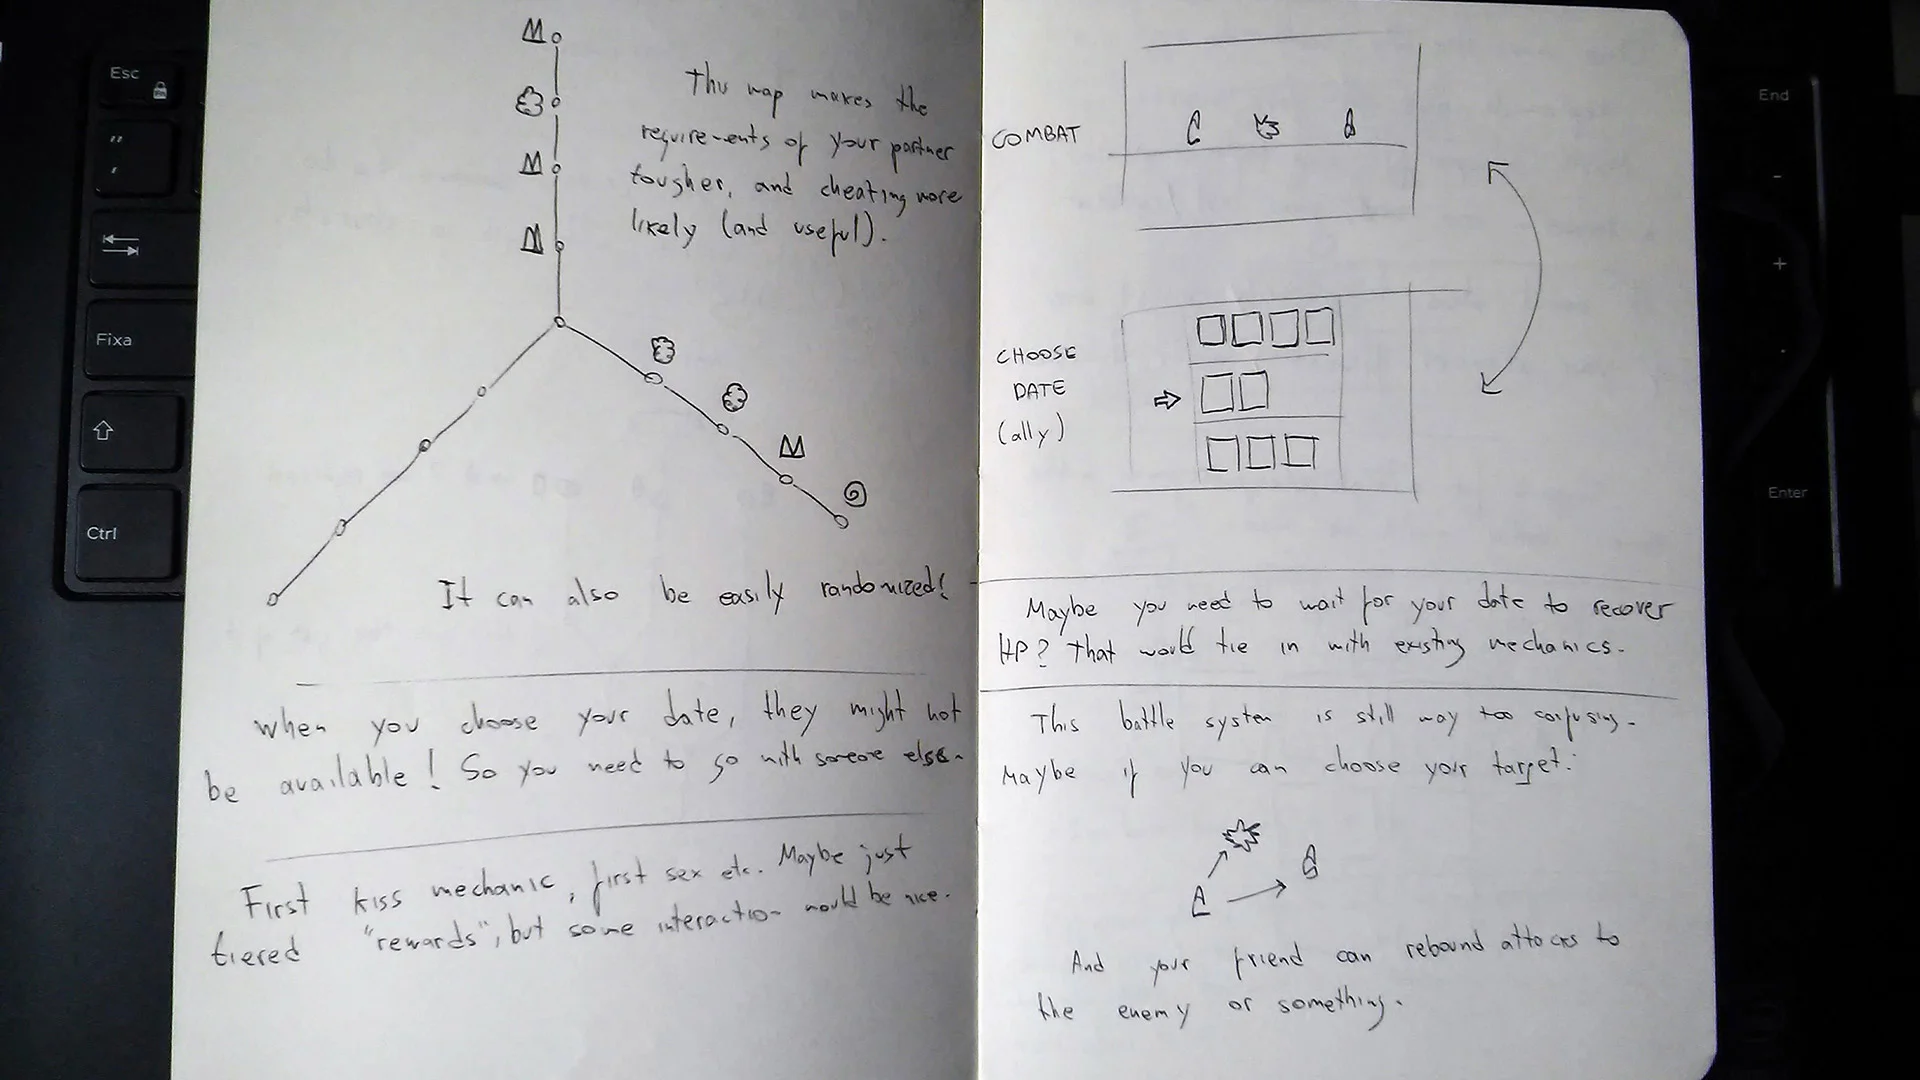 This map makes the
requirements of your partner
tougher, and cheating more
likely (and useful).
It can also be easily randomized!
When you choose your date, they might not
be available! So you need to go with someone else.
First kiss mechanic, first sex etc. Maybe just
tiered "rewards", but some interaction would be nice.
COMBAT
VS
CHOOSE
DATE
(ally)
Maybe you need to wait for your date to recover
HP? That would tie in with existing mechanics.
This battle system is still way too confusing.
Maybe if you can choose your target:
And your friend can rebound attacks to
the enemy or something.
Esc
Fn
"
'
Fixa
Ctrl
End
-
+
.
Enter